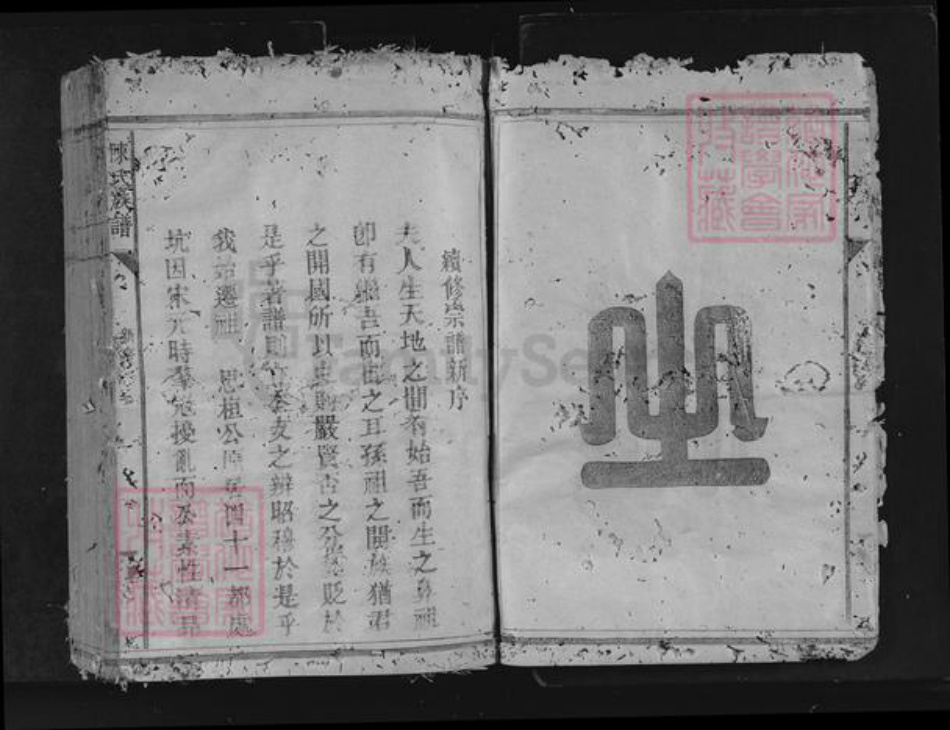 坐
續修宗譜新序
夫人生天地之間有始吾而生之鼻祖
卽有繼吾而出之耳孫祖之開族猶君
之開國所以史則嚴賢否之分褒貶於
是乎著譜則 本支之辨昭穆於是乎
我始遷祖 思植公 居四十一都處
坑因宋元時羣宼擾亂而公素性清
陳氏族譜
FamilySearch